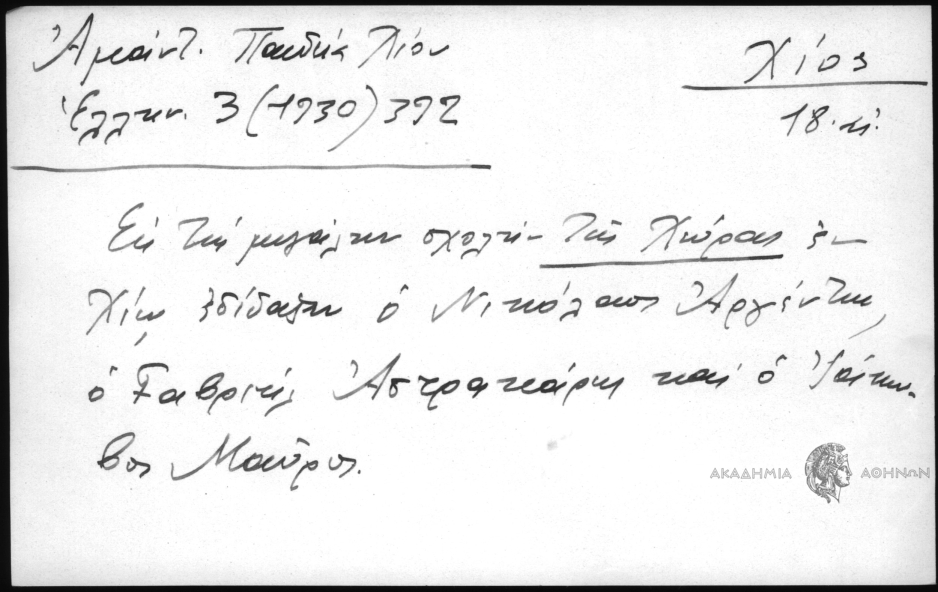 Ἀμάντ. Παιδεία Χίου
Ἑλλην. 3 (1930) 392
Χίος
18. αἰ.
Εἰς τὴν μεγάλην σχολὴν τῆς Χώρας ἐν
Χίῳ ἐδίδαξεν ὁ Νικόλαος Ἀργέντης,
ὁ Γαβριὴλ Ἀστρακάρης καὶ ὁ Ἰάκω-
βος Μαῦρος.
ΑΚΑΔΗΜΙΑ ΑΘΗΝΩΝ